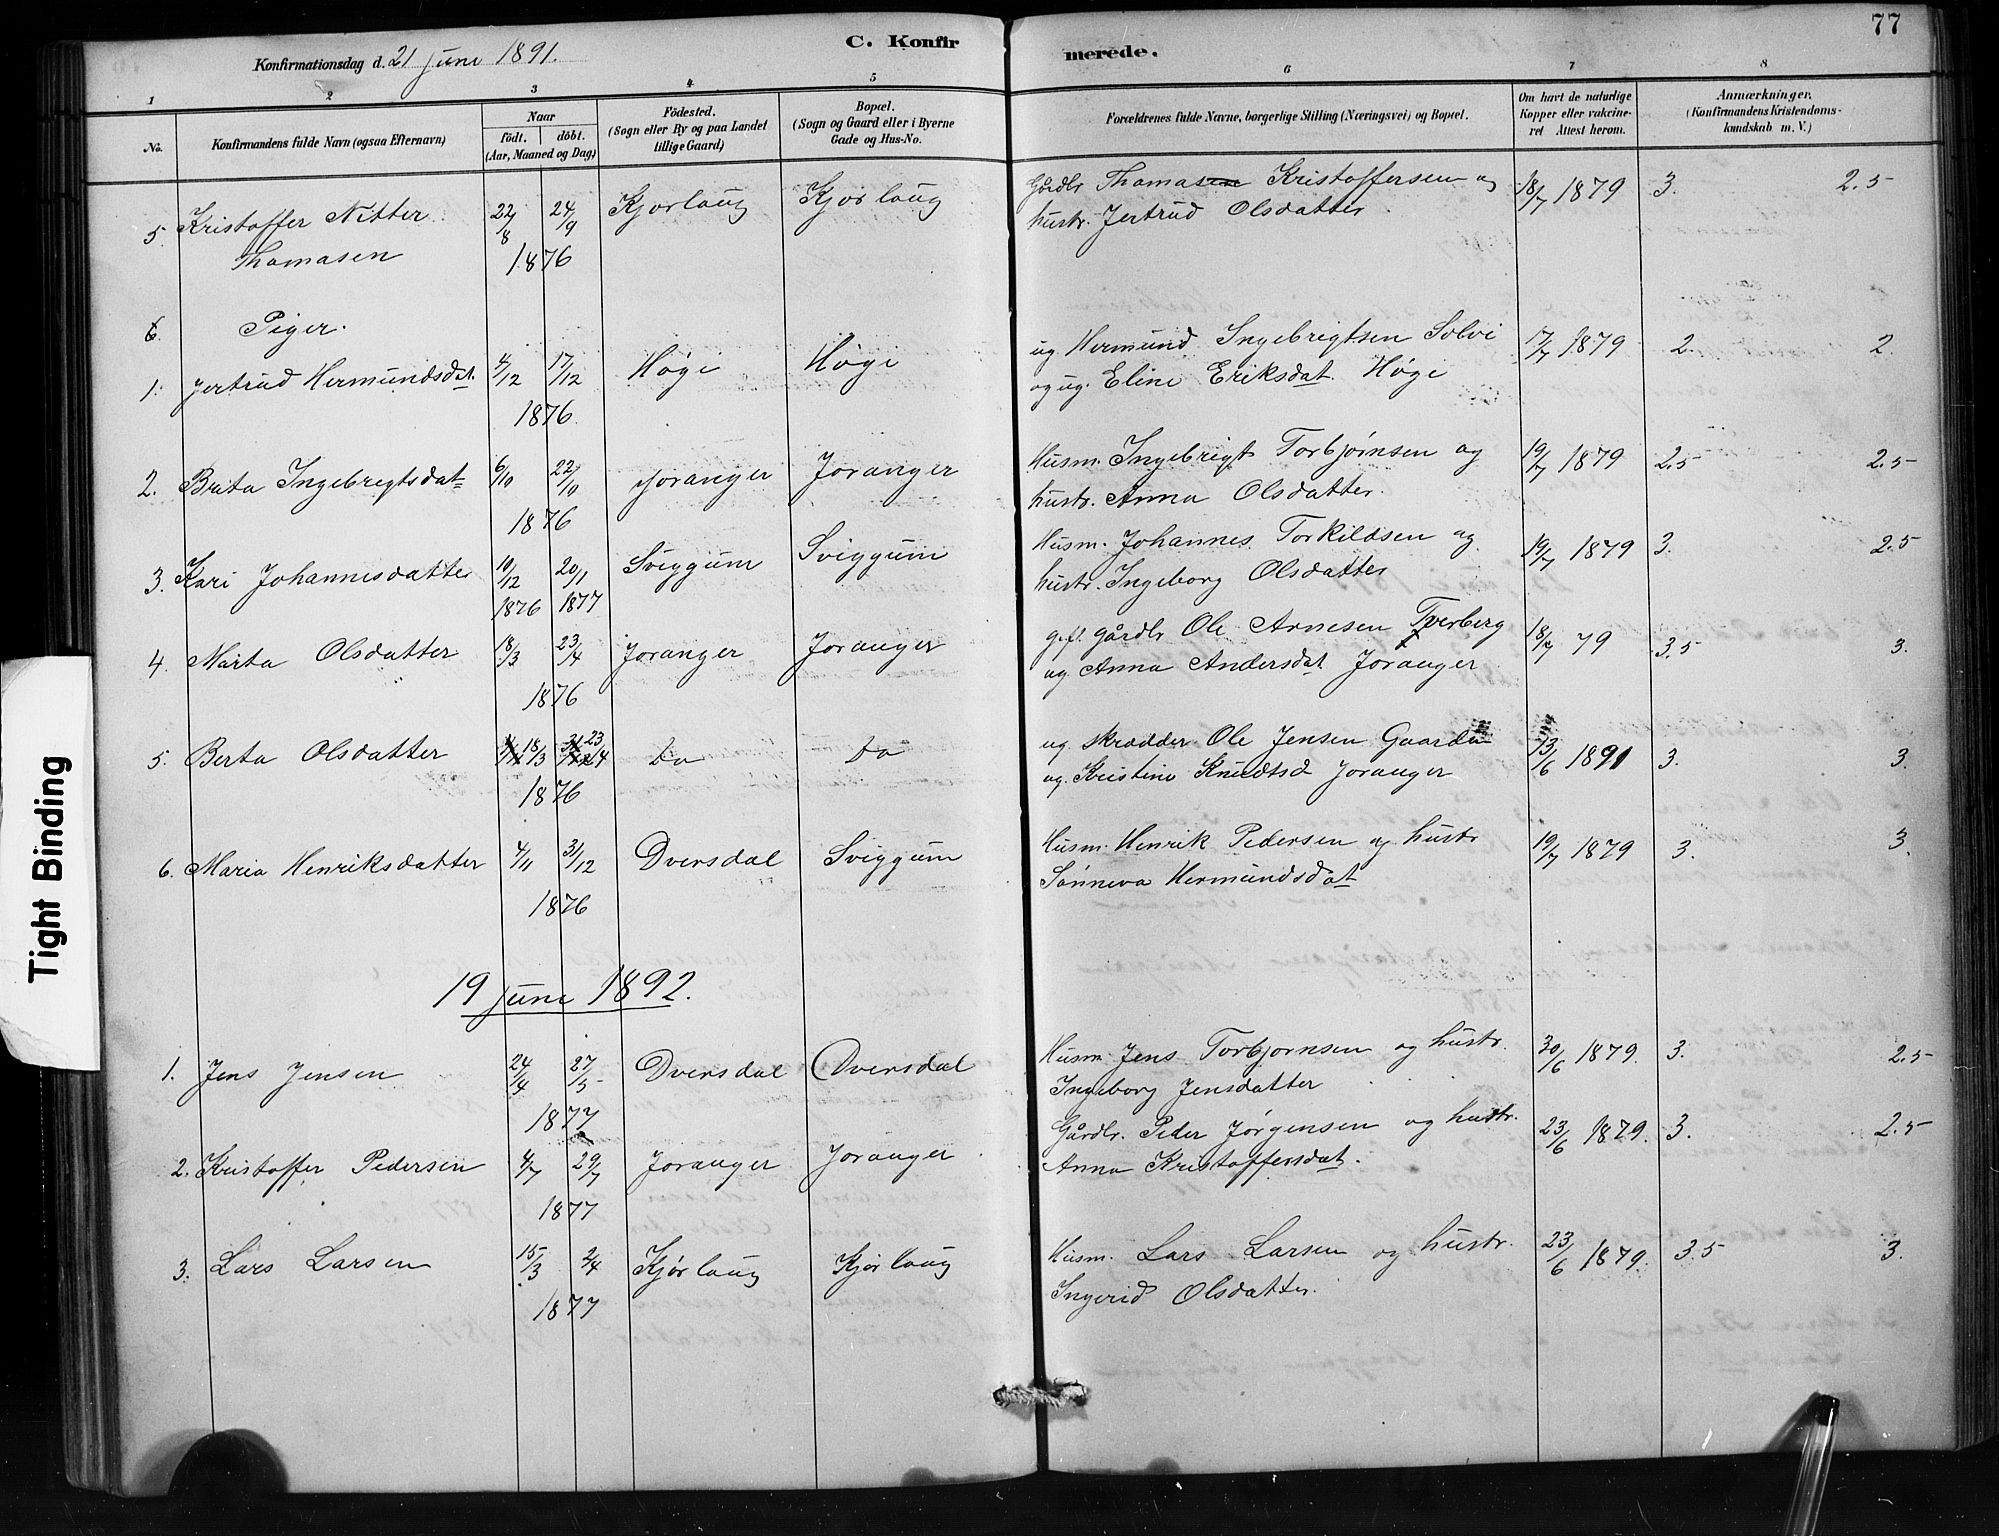 77
C. Konfirmerede.
Konfirmationsdag d. 21 Juni 1891.
1 2 3 4 5 6 7 8
No.
Konfirmandens fulde Navn (ogsaa Efternavn)
Naar
födt. döbt.
(Aar, Maaned og Dag)
Födested.
(Sogn eller By og paa Landet
tillige Gaard)
Bopæl.
(Sogn og Gaard eller i Byerne
Gade og Hus-No.
Forældrenes fulde Navne, borgerlige Stilling (Næringsvei) og Bopæl.
Om havt de naturlige
Kopper eller vakcine-
ret Attest herom.
Anmærkninger.
(Konfirmandens Kristendoms-
kundskab m. V.)
5. Kristoffer Nitter 22/8 24/9 Kjørlaug Kjørlaug Gårdbr Thomasen Kristoffersen og 18/7 1879 3. 2.5
Thomasen 1876 hustr. Jertrud Olsdatter.
6. Piger.
1. Jertrud Hermundsdat. 4/12 17/12 Høgi Høgi ug Hermund Ingebrigtsen Solvi 17/7 1879 2. 2.
1876 og ug. Eline Eriksdat. Høgi
2. Brita Ingebrigtsdat 6/10 22/10 Joranger Joranger Husm. Ingebrigt Torbjørnsen og 19/7 1879 2.5 2.5
1876 hustr. Anna Olsdatter.
3. Kari Johannesdatter 10/12 20/1 Sviggum Sviggum Husm. Johannes Torkildsen og 19/7 1879 3. 2.5
1876 1877 hustr. Ingeborg Olsdatter
4. Marta Olsdatter 18/3 23/4 Joranger Joranger gift gårdbr Ole Arnesen Tverberg 18/7 79 3.5 3.
1876 ug Anna Andersdat Joranger
5. Berta Olsdatter 18/3 23/4 Do Do ug skrædder Ole Jensen Gaarden 13/6 1891 3. 3.
1876 ug. Kristine Knudtsd Joranger
6. Maria Henriksdatter 4/11 31/12 Dversdal Sviggum Husm. Henrik Pedersen og hustr 19/7 1879 3. 3.
1876 Sønneva Hermundsdat
19 Juni 1892.
1. Jens Jensen 24/4 27/5 Dversdal Dversdal Husm. Jens Torbjørnsen og hustr. 30/6 1879. 3. 2.5
1877 Ingeborg Jensdatter
2. Kristoffer Pedersen 4/7 29/7 Joranger Joranger Gårdbr. Peder Jørgensen og hustr. 23/6 1879. 3. 2.5
1877 Anna Kristoffersdat.
3. Lars Larsen 15/3 2/4 Kjørlaug Kjørlaug Husm. Lars Larsen og hustr. 23/6 1879. 3.5 3.
1877 Ingerid Olsdatter.
Tight Binding